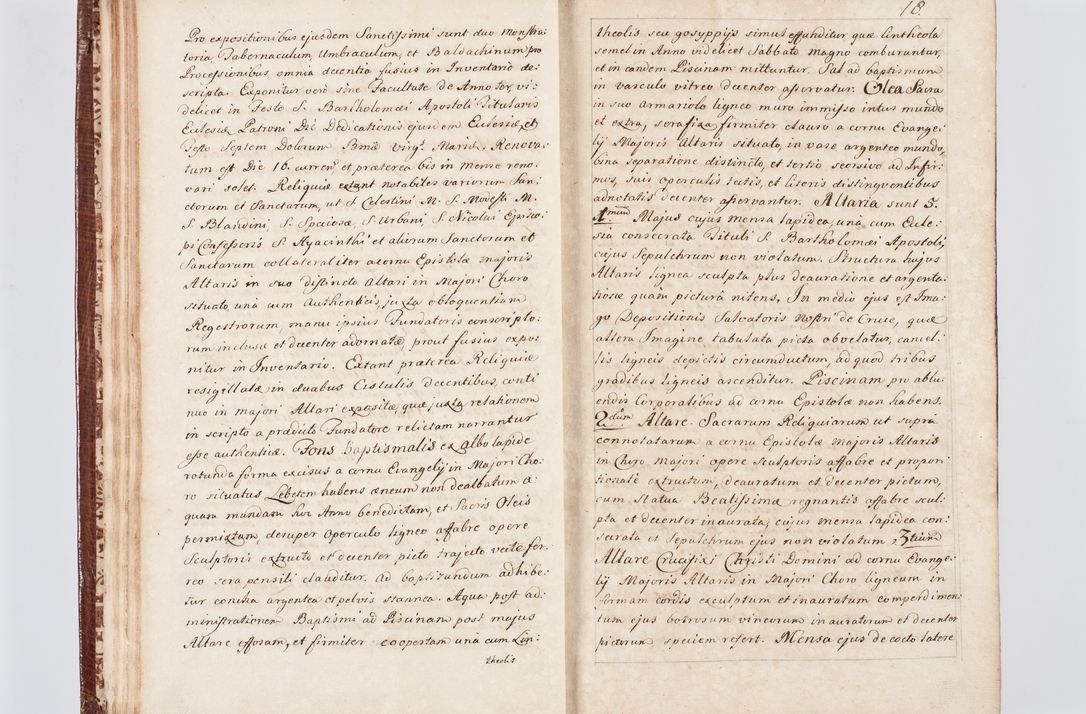 Pro expositionibus ejusdem Sanctissimi sunt duo Monstra:
toria, Tabernaculum, Umbraculum, et Baldachinum pro
Processionibus, omnia decentia fusius in Inventario de:
scripta. Exponitur verò sine Facultate de Anno ter, vi:
delicet in Festo S. Bartholomæi Apostoli Titularis
Eclesiæ Patroni Die Dedicationis ejusdem Eclesiæ, et
Festo Septem Dolorum Bmæ Virgs Mariæ. Renova:
tum est Die 16. curren. et præterea bis in mense reno:
vari solet. Reliquiæ extant notabiles variorum San:
ctorum et Sanctarum, ut S. Celestini M. S. Modesti M.
S. Blandini, S. Speciosæ, S. Urbani S. Nicolai Episco:
pi Confessoris S. Hyacinthi et aliorum Sanctorum et
Sanctarum collateraliter a cornu Epistolæ majoris
Altaris in suo distincto Altari in Majori Choro
situato, unà cum Authenticis, juxta obloquentiam
Regestrorum, manu ipsius Fundatoris conscripto:
rum inclusæ et decenter adornatæ, prout fusius expo:
nitur in Inventario. Extant præterea Reliquiæ
resigillatæ in duabus Cistulis decentibus, conti
nuo in majori Altari expositæ, quæ juxta relationem
in scripto a prædicto Fundatore relictam narrantur
esse authenticæ. Fons baptismalis ex albo lapide
rotunda forma excisus a cornu Evangelij in Majori Cho:
ro situatus Lebetem habens æneum non dealbatum a:
quam mundam hoc Anno benedictam, et Sacris Oleis
permixtam, desuper Operculo ligneo affabre opere
Sculptoris extructo et decenter picto trajecto vecte fer:
reo sera pensili clauditur. Ad baptizandum adhibe:
tur concha argentea et pelvis stannea. Aqua post ad:
ministrationem Baptismi ad Piscinam post majus
Altare effosam, et firmiter coopertam unà cum Lin:
theolis
18.
theolis seu gosyppijs simus effunditur quæ lintheola
semel in Anno videlicet Sabbato magno comburuntur,
et in eandem Piscinam mittuntur. Sal ad baptismum
in vasculo vitreo decenter asservatur. Olea Sacra
in suo armariolo ligneo muro immisso intus mundo
et extra, sera fixa firmiter clauso a cornu Evange:
lij Majoris Altaris situato, in vase argenteo mundo,
bina separatione distincto, et tertio seorsivo ad Infir:
mos, suis operculis tectis, et literis distinquentibus
adnotatis decenter asservantur. Altaria sunt 5.
1mum Majus cujus mensa lapidea, unà cum Ecle:
sia consecrata Tituli S. Bartholomæi Apostoli,
cujus Sepulchrum non violatum. Structura hujus
Altaris lignea sculpta plus deauratione et argenta:
tione quam picturâ nitens, In medio ejus est Ima:
go Depositionis Salvatoris Nostri de Cruce, quæ
altera Imagine tabulata picta obvelatur, cancel:
lis ligneis depictis circumductum, ad quod tribus
gradibus ligneis ascenditur. Piscinam pro ablu:
endis Corporalibus ad cornu Epistolæ non habens.
2dum Altare Sacrarum Reliquiarum ut supra
connotatarum a cornu Epistolæ Majoris Altaris
in Choro majori opere sculptoris affabre et propor:
tionatè extructum, deauratum et decenter pictum,
cum Statua Beatissimæ regnantis affabre scul:
pta et decenter inaurata, cujus mensa lapidea con:
secrata et Sepulchrum ejus non violatum 3tium
Altare Crucifixi Christi Domini ad cornu Evange:
lij Majoris Altaris in Majori Choro ligneum in
formam cordis exculptum et inauratum comperdimen:
tum ejus botrosum vinearum inauratorum et decenter
pictorum speciem refert. Mensa ejus de cocto latere